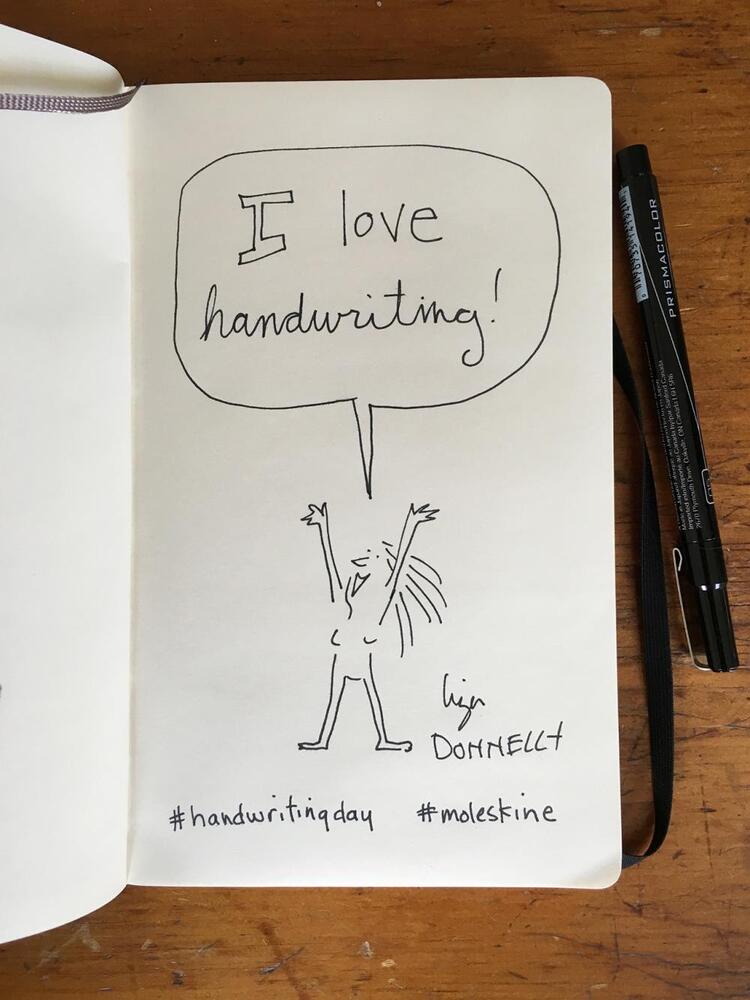 I love
handwriting!
liza
DONNELLY
#handwritingday #moleskine
PRISMACOLOR